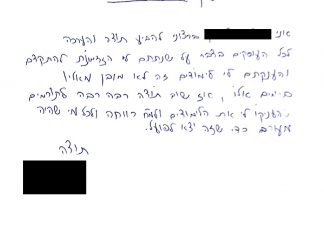 אני ברצוני להביע תודה והערכה
לכל העוסקים בדבר על שנתתם לי הזדמנות להתקדם
והענקתם לי לימודים זה לא מובן מאליו
בימים אלו, אז שוב תודה רבה רבה לתורמים
שהעניקו לי את הלימודים ולמח' רווחה ולכל מי שהיה
מעורב כדי שזה יצא לפועל.
תודה